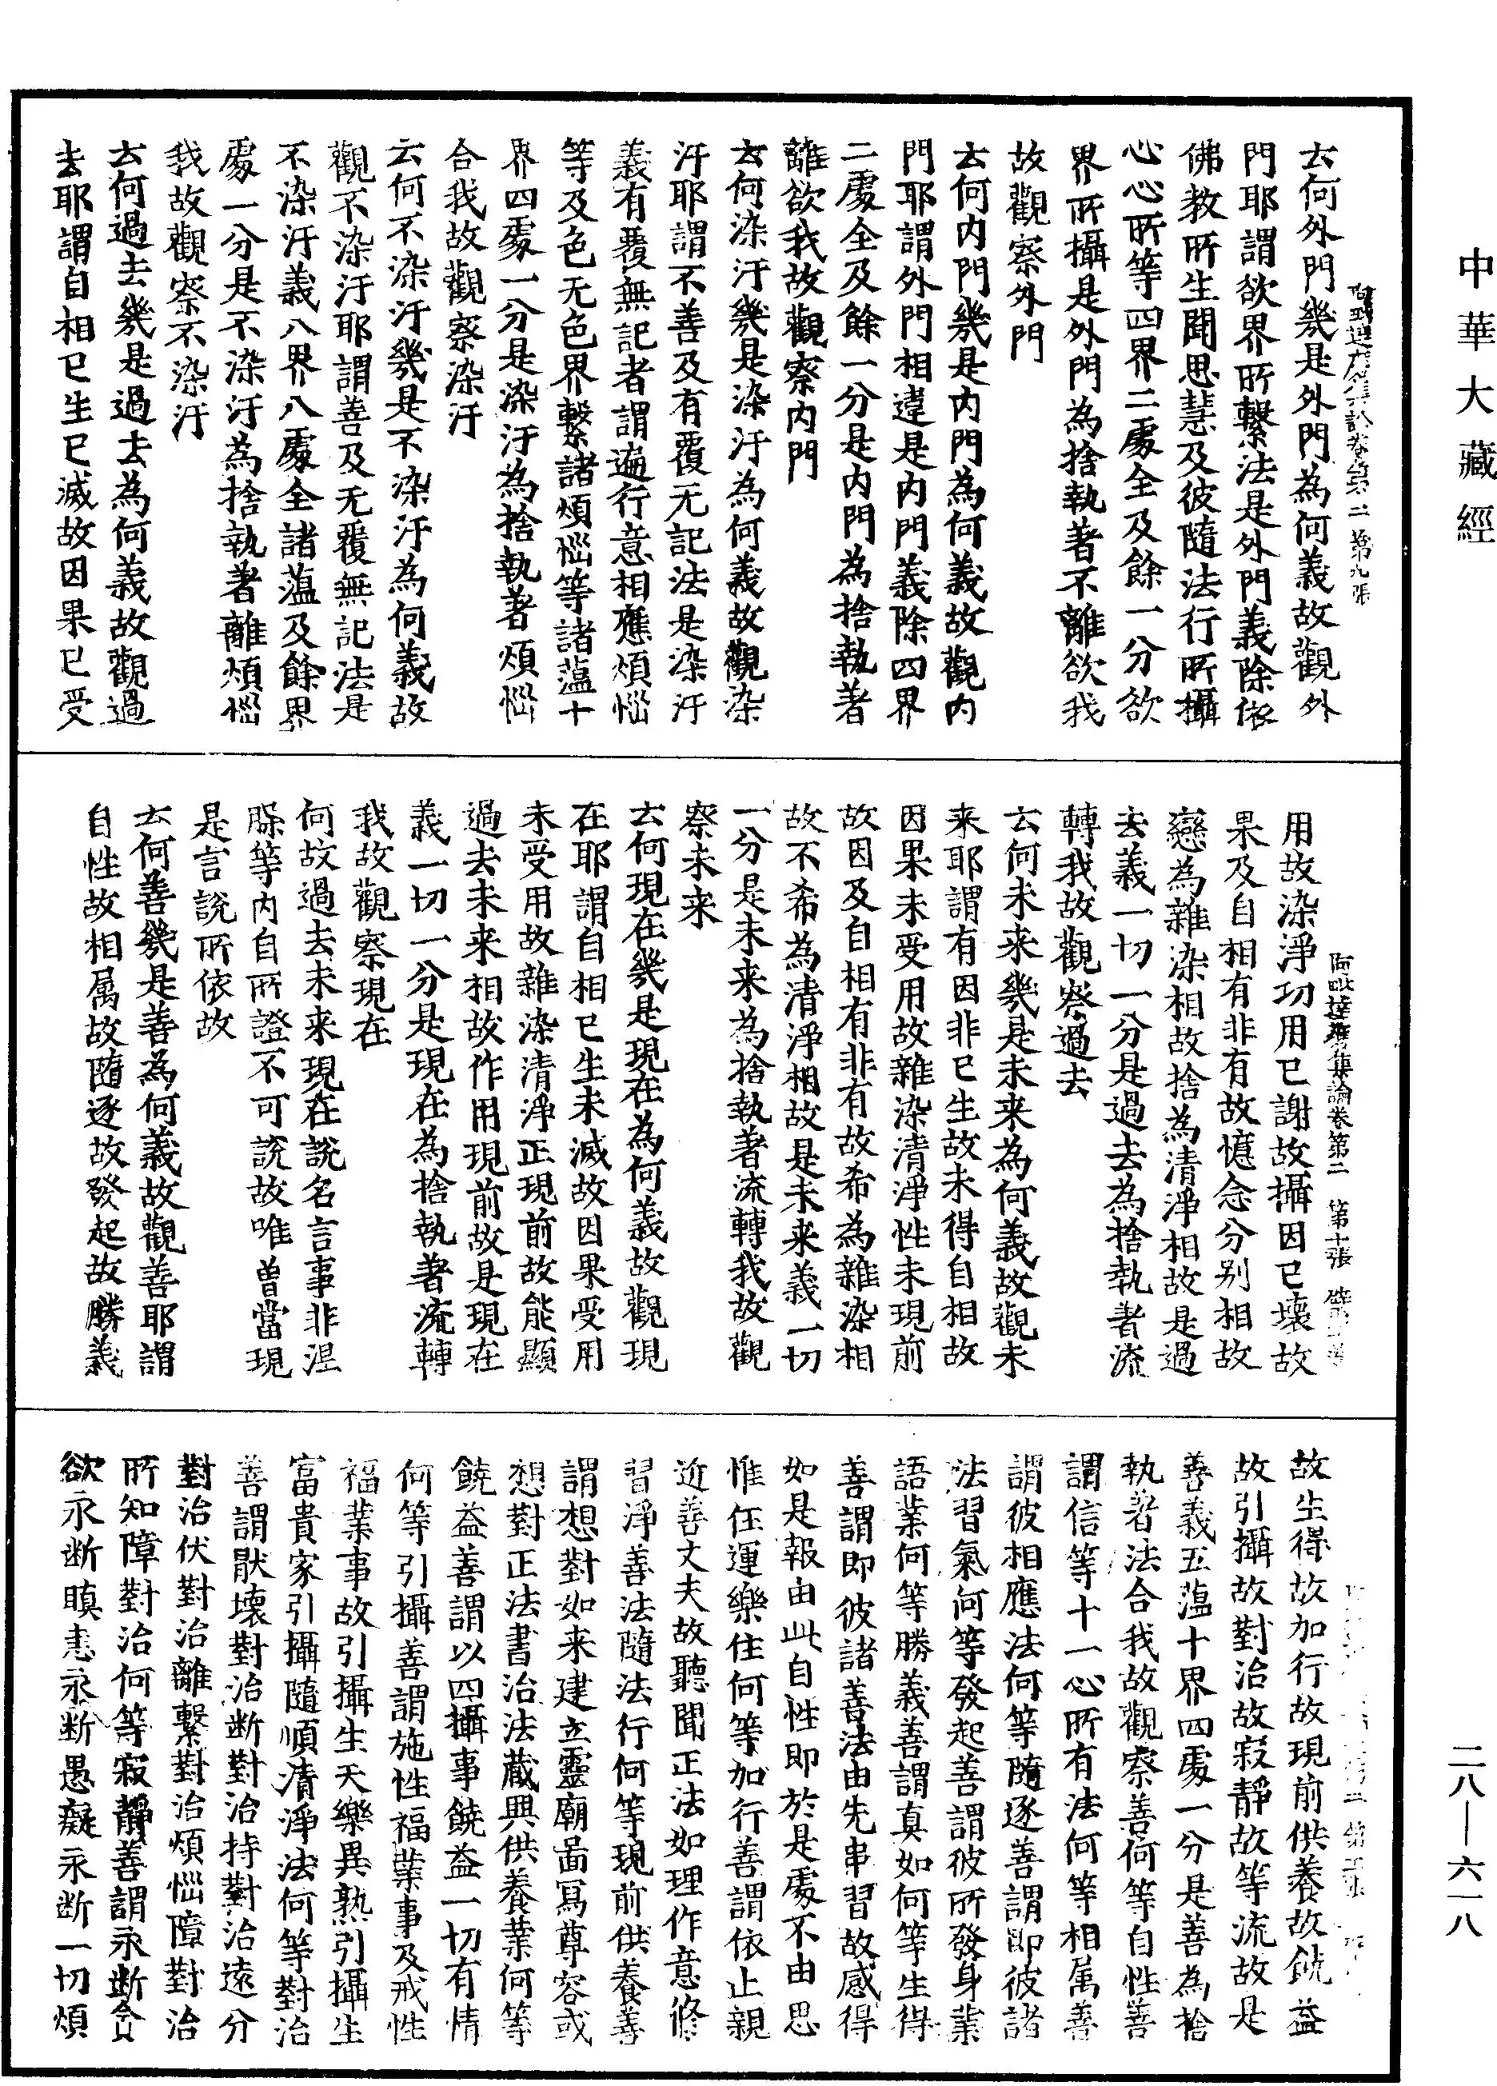 中華大藏經
云何外門幾是外門為何義故觀外
門耶謂欲界所繫法是外門義除依
佛教所生聞思慧及彼隨法行所攝
心心所等四界二處全及餘一分欲
界所攝是外門為捨執著不離欲我
故觀察外門
云何內門幾是內門為何義故觀內
門耶謂外門相違是內門義除四界
二處全及餘一分是內門為捨執著
離欲我故觀察內門
云何染汙幾是染汙為何義故觀染
汙耶謂不善及有覆无記法是染汙
義有覆無記者謂遍行意相應煩惱
等及色无色界繫諸煩惱等諸蘊十
界四處一分是染汙為捨執著煩惱
合我故觀察染汙
云何不染汙幾是不染汙為何義故
觀不染汙耶謂善及无覆無記法是
不染汙義八界八處全諸蘊及餘界
處一分是不染汙為捨執著離煩惱
我故觀察不染汙
云何過去幾是過去為何義故觀過
去耶謂自相已生已滅故因果已受
阿毗達磨集論卷第二 第十張
用故染淨功用已謝故攝因已壞故
果及自相有非有故憶念分別相故
戀為雜染相故捨為清淨相故是過
去義一切一分是過去為捨執著流
轉我故觀察過去
云何未來幾是未來為何義故觀未
來耶謂有因非已生故未得自相故
因果未受用故雜染清淨性未現前
故因及自相有非有故希為雜染相
故不希為清淨相故是未來義一切
一分是未來為捨執著流轉我故觀
察未來
云何現在幾是現在為何義故觀現
在耶謂自相已生未滅故因果受用
未受用故雜染清淨正現前故能顯
過去未來相故作用現前故是現在
義一切一分是現在為捨執著流轉
我故觀察現在
何故過去未來現在說名言事非涅
槃等內自所證不可說故唯曾當現
是言說所依故
云何善幾是善為何義故觀善耶謂
自性故相屬故隨逐故發起故勝義
故生得故加行故現前供養故饒益
故引攝故對治故寂靜故等流故是
善義五蘊十界四處一分是善為捨
執著法合我故觀察善何等自性善
謂信等十一心所有法何等相屬善
謂彼相應法何等隨逐善謂即彼諸
法習氣何等發起善謂彼所發身業
語業何等勝義善謂真如何等生得
善謂即彼諸善法由先串習故感得
如是報由此自性即於是處不由思
惟任運樂住何等加行善謂依止親
近善丈夫故聽聞正法如理作意修
習淨善法隨法行何等現前供養善
謂想對如來建立靈廟啚寫尊容或
想對正法書治法藏興供養業何等
饒益善謂以四攝事饒益一切有情
何等引攝善謂施性福業事及戒性
福業事故引攝生天樂異熟引攝生
富貴家引攝隨順清淨法何等對治
善謂猒壞對治斷對治持對治遠分
對治伏對治離繫對治煩惱障對治
所知障對治何等寂靜善謂永斷貪
欲永斷瞋恚永斷愚癡永斷一切煩
二八—六一八